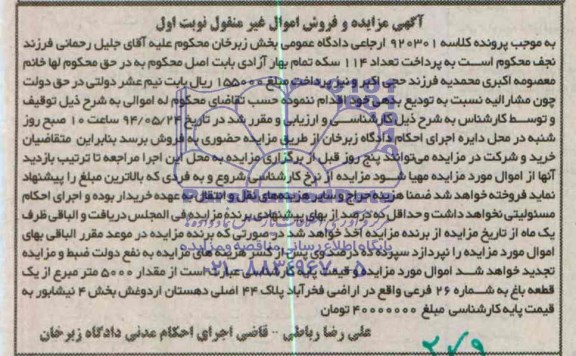 آگهی مزایده و فروش اموال غیر منقول نوبت اول
به موجب پرونده کلاسه ۹۲۰۳۰۱ ارجاعی دادگاه عمومی بخش زبرخان محکوم علیه آقای جلیل رحمانی فرزند
نجف محکوم است به پرداخت تعداد ۱۱۴ سکه تمام بهار آزادی بابت اصل محکوم به در حق محکوم لها خانم
معصومه اکبری محمدیه فرزند حجی اکبر و نیز پرداخت مبلغ ۱۵۵۰۰۰ ریال بابت نیم عشر دولتی در حق دولت
چون مشارالیه نسبت به تودیع بدهی خود اقدام ننموده حسب تقاضای محکوم له اموالی به شرح ذیل توقیف
و توسط کارشناس به شرح ذیل کارشناسی و ارزیابی و مقرر شد در تاریخ ۹۴/۰۵/۲۴ ساعت ۱۰ صبح روز
شنبه در محل دایره اجرای احکام دادگاه زبرخان از طریق مزایده حضوری به فروش برسد بنابراین متقاضیان
خرید و شرکت در مزایده می‌توانند پنج روز قبل از برگزاری مزایده به محل این اجرا مراجعه تا ترتیب بازدید
آنها از اموال مورد مزایده مهیا شود مزایده از نرخ کارشناسی شروع و به فردی که بالاترین مبلغ را پیشنهاد
نماید فروخته خواهد شد ضمنا هزینه حراج و سایر هزینه‌های نقل و انتقال به عهده خریدار بوده و اجرای احکام
مسئولیتی نخواهد داشت و حداقل ده درصد از بهای پیشنهادی برنده مزایده فی المجلس دریافت و الباقی ظرف
یک ماه از تاریخ مزایده از برنده مزایده اخذ خواهد شد در صورتی که برنده مزایده در موعد مقرر الباقی بهای
اموال مورد مزایده را نپردازد سپرده ده درصدی وی پس از کسر هزینه های مزایده به نفع دولت ضبط و مزایده
تجدید خواهد شد اموال مورد مزایده و قیمت پایه کارشناسی عبارت است از مقدار ۵۰۰۰ متر مربع از یک
قطعه باغ به شماره ۲۶ فرعی واقع در اراضی فخرآباد پلاک ۴۴ اصلی دهستان اردوغش بخش ۴ نیشابور به
قیمت پایه کارشناسی مبلغ ۴۰۰۰۰۰۰۰ تومان
علی رضا رباطی - قاضی اجرای احکام مدنی دادگاه زبرخان
پایگاه اطلاع رسانی مناقصه و مزایده
۰۲۱-۸۸۳۴۹۶۷۰-۵
۲۷۹